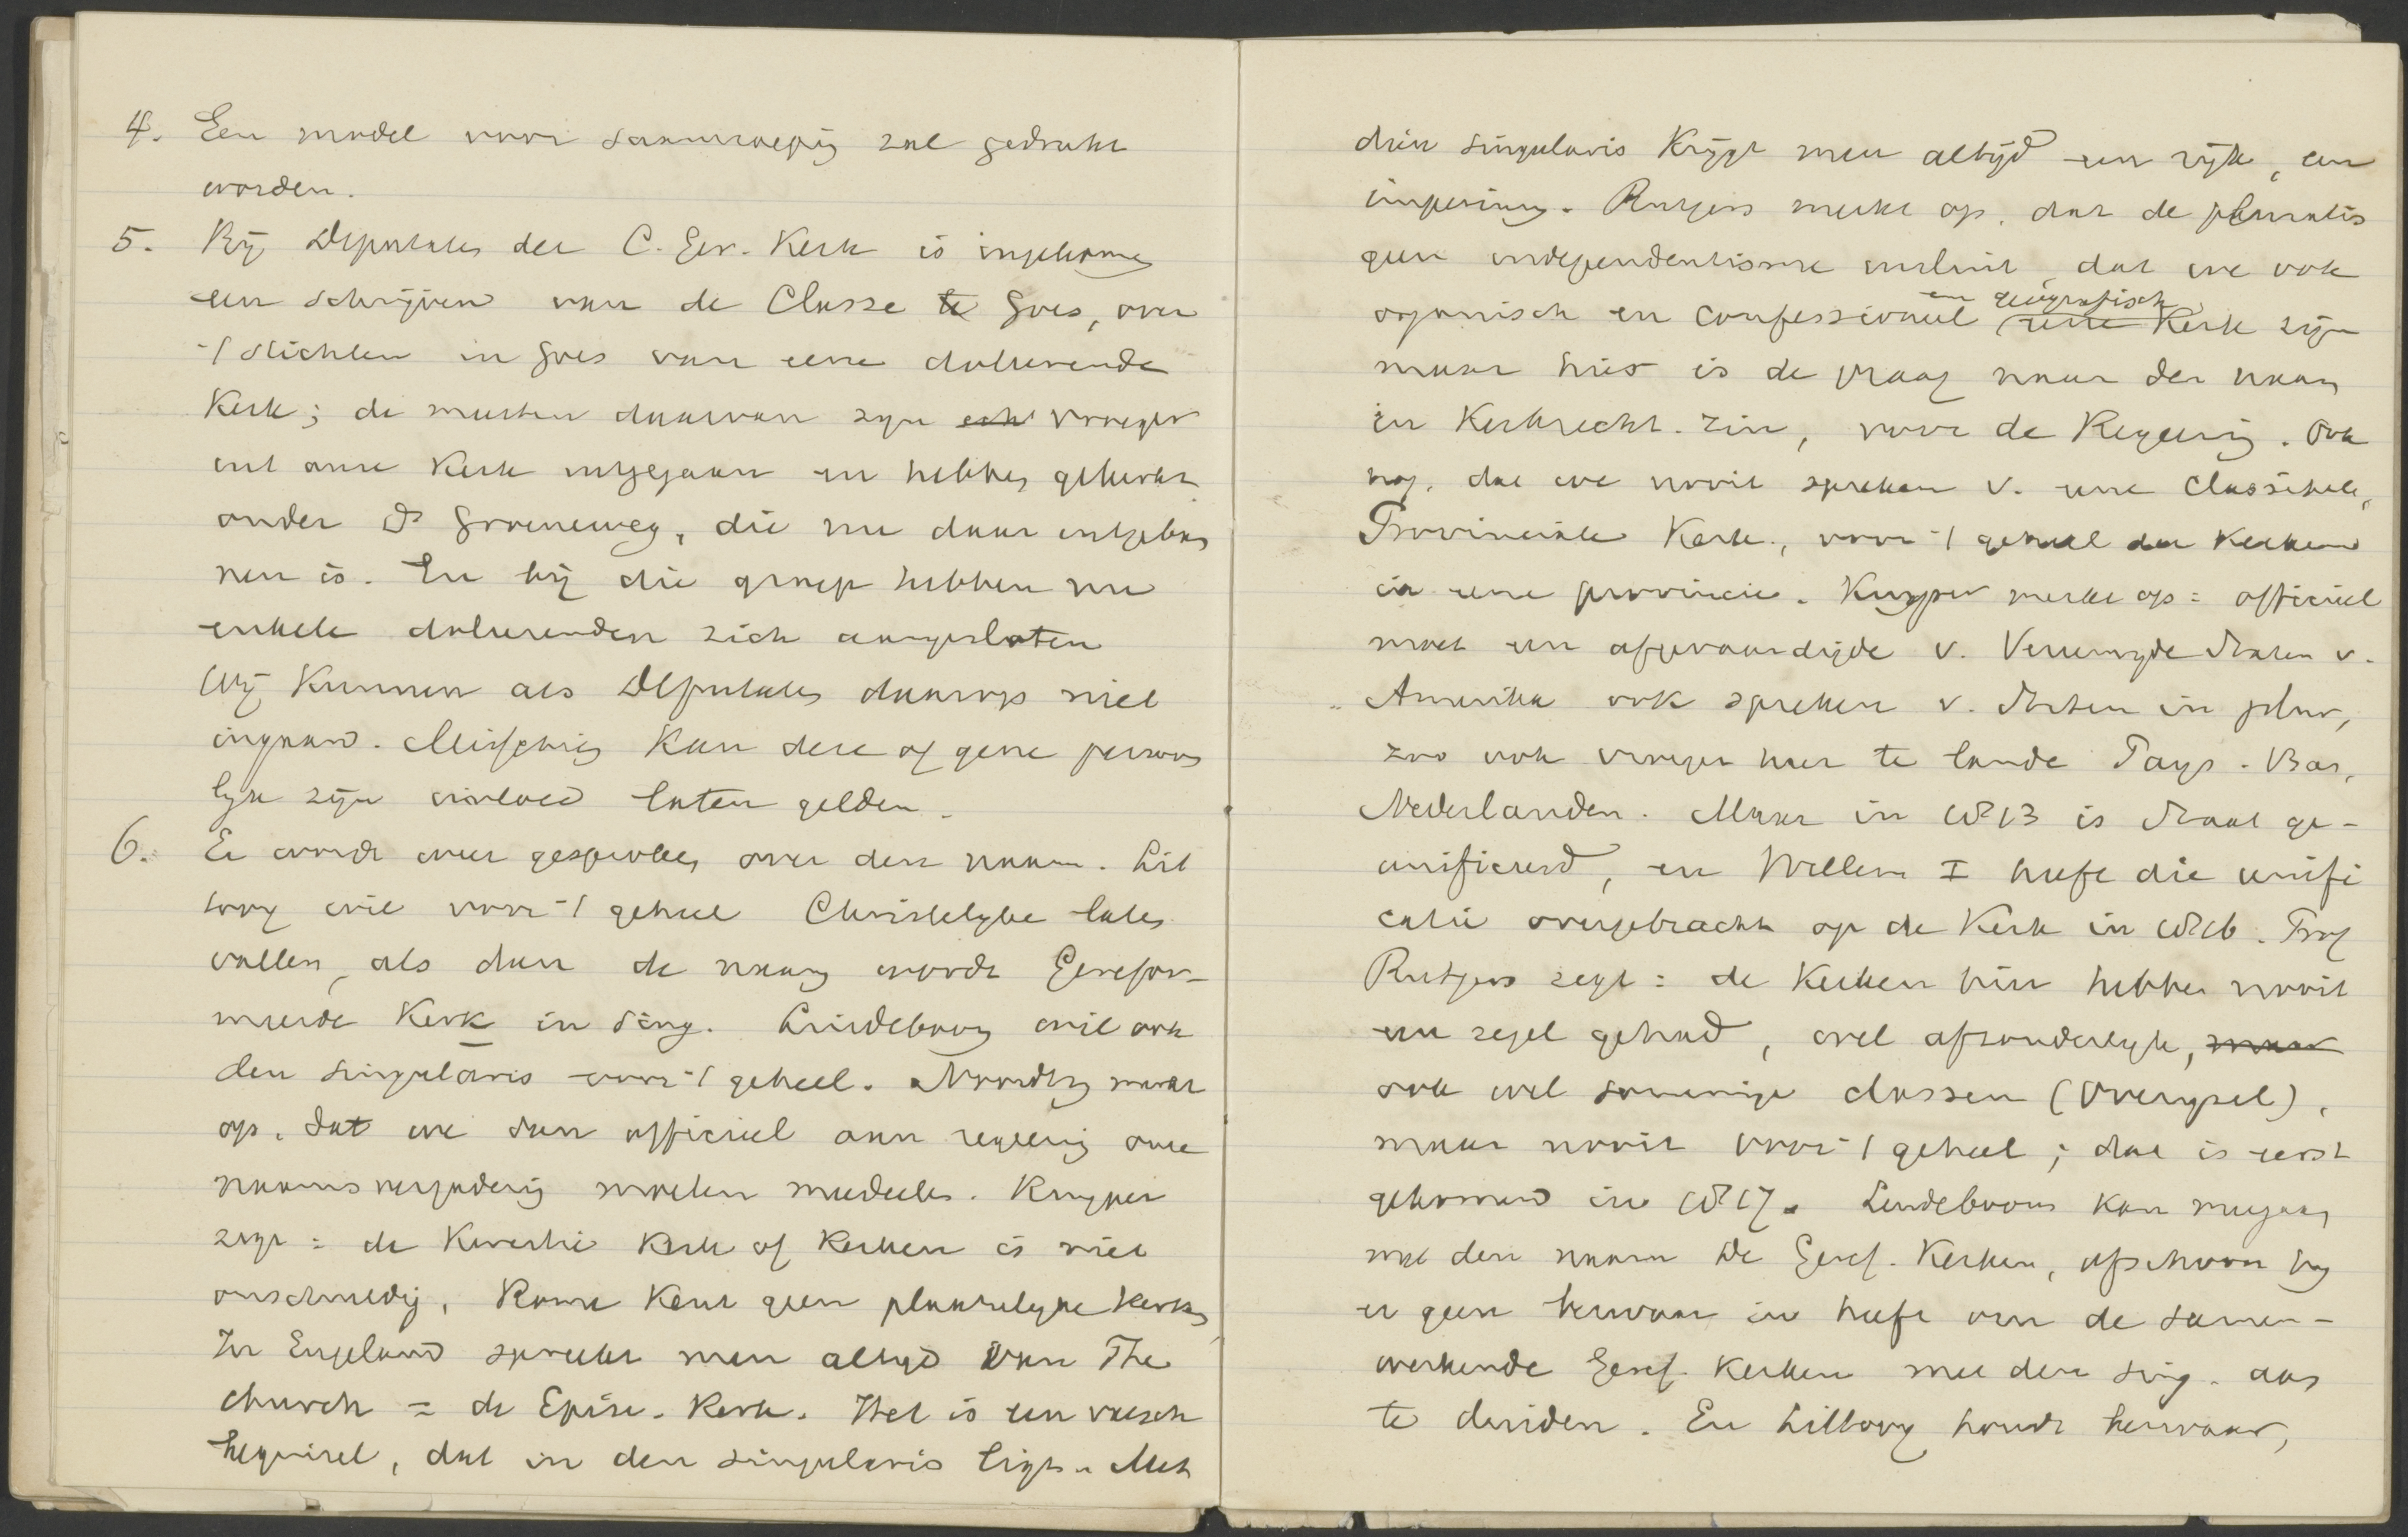 4. Een model voor saamroeping zal gedrukt
worden.
5. Bij Deputaten der C. Ger. Kerk is ingekomen
een schrijven van de Classe te Goes, over
't stichten in Goes van eene doleerende
Kerk; de meesten daarvan zijn echt vroeger
uit onze Kerk uitgegaan en hebben gekerkt
onder Ds Groeneweg, die nu daar ontbon
nen is. En bij die groep hebben nu
enkele doleerenden zich aangesloten
Wij kunnen als Deputaten daarop niet
ingaan. Misschien kan deze of gene persoon
lijk zijn invloed laten gelden.
6. Er wordt weer gesproken over den naam. Lit
tooy wil voor 't geheel Christelijke laten
vallen, als dan de naam wordt Gerefor-
meerde Kerk in sing. Lindeboom wil ook
den singularis voor 't geheel. Noordtzij merkt
op, dat we dan officieel aan regeering onze
naamsverandering moeten mededeelen. Kuyper
zegt: de kwestie Kerk of Kerken is niet
onschuldig. Rome kent geen plaatselijke Kerken
In Engeland spreekt men altijd van The
church = de Episc. Kerk. Het is een valsch
beginsel, dat in den singularis ligt. Met
dien singularis krijgt men altijd een rijk, een
imperium. Rutgers merkt op, dat de pluralis
geen independentisme insluit, dat we ook
organisch en confessioneel en geografisch eene Kerk zijn
maar hier is de vraag naar den naam
in Kerkrecht. zin, voor de Regeering. Ook
nog, dat we nooit spreken v. eene Classikale,
Provinciale Kerk, voor 't geheel der Kerken
in eene provincie. Kuyper merkt op: officieel
moet een afgevaardigde v. Vereenigde Staten v.
Amerika ook spreken v. Staten in plur,
zoo ook vroeger hier te lande Pays-Bas,
Nederlanden. Maar in 1813 is Staat ge-
unificeerd, en Willem I heeft die unifi
catie overgebracht op de Kerk in 1816. Prof
Rutgers zegt: de Kerken hier hebben nooit
een zegel gehad, wel afzonderlijke, maar
ook wel sommige classen (Overijsel),
maar nooit voor 't geheel; dat is eerst
gekomen in 1817. Lindeboom kan meegaan
met den naam De Geref. Kerken, ofschoon hij
er geen bezwaar in heeft om de samen-
werkende Geref. Kerken met den sing. aan
te duiden. En Littooy houdt bezwaar,